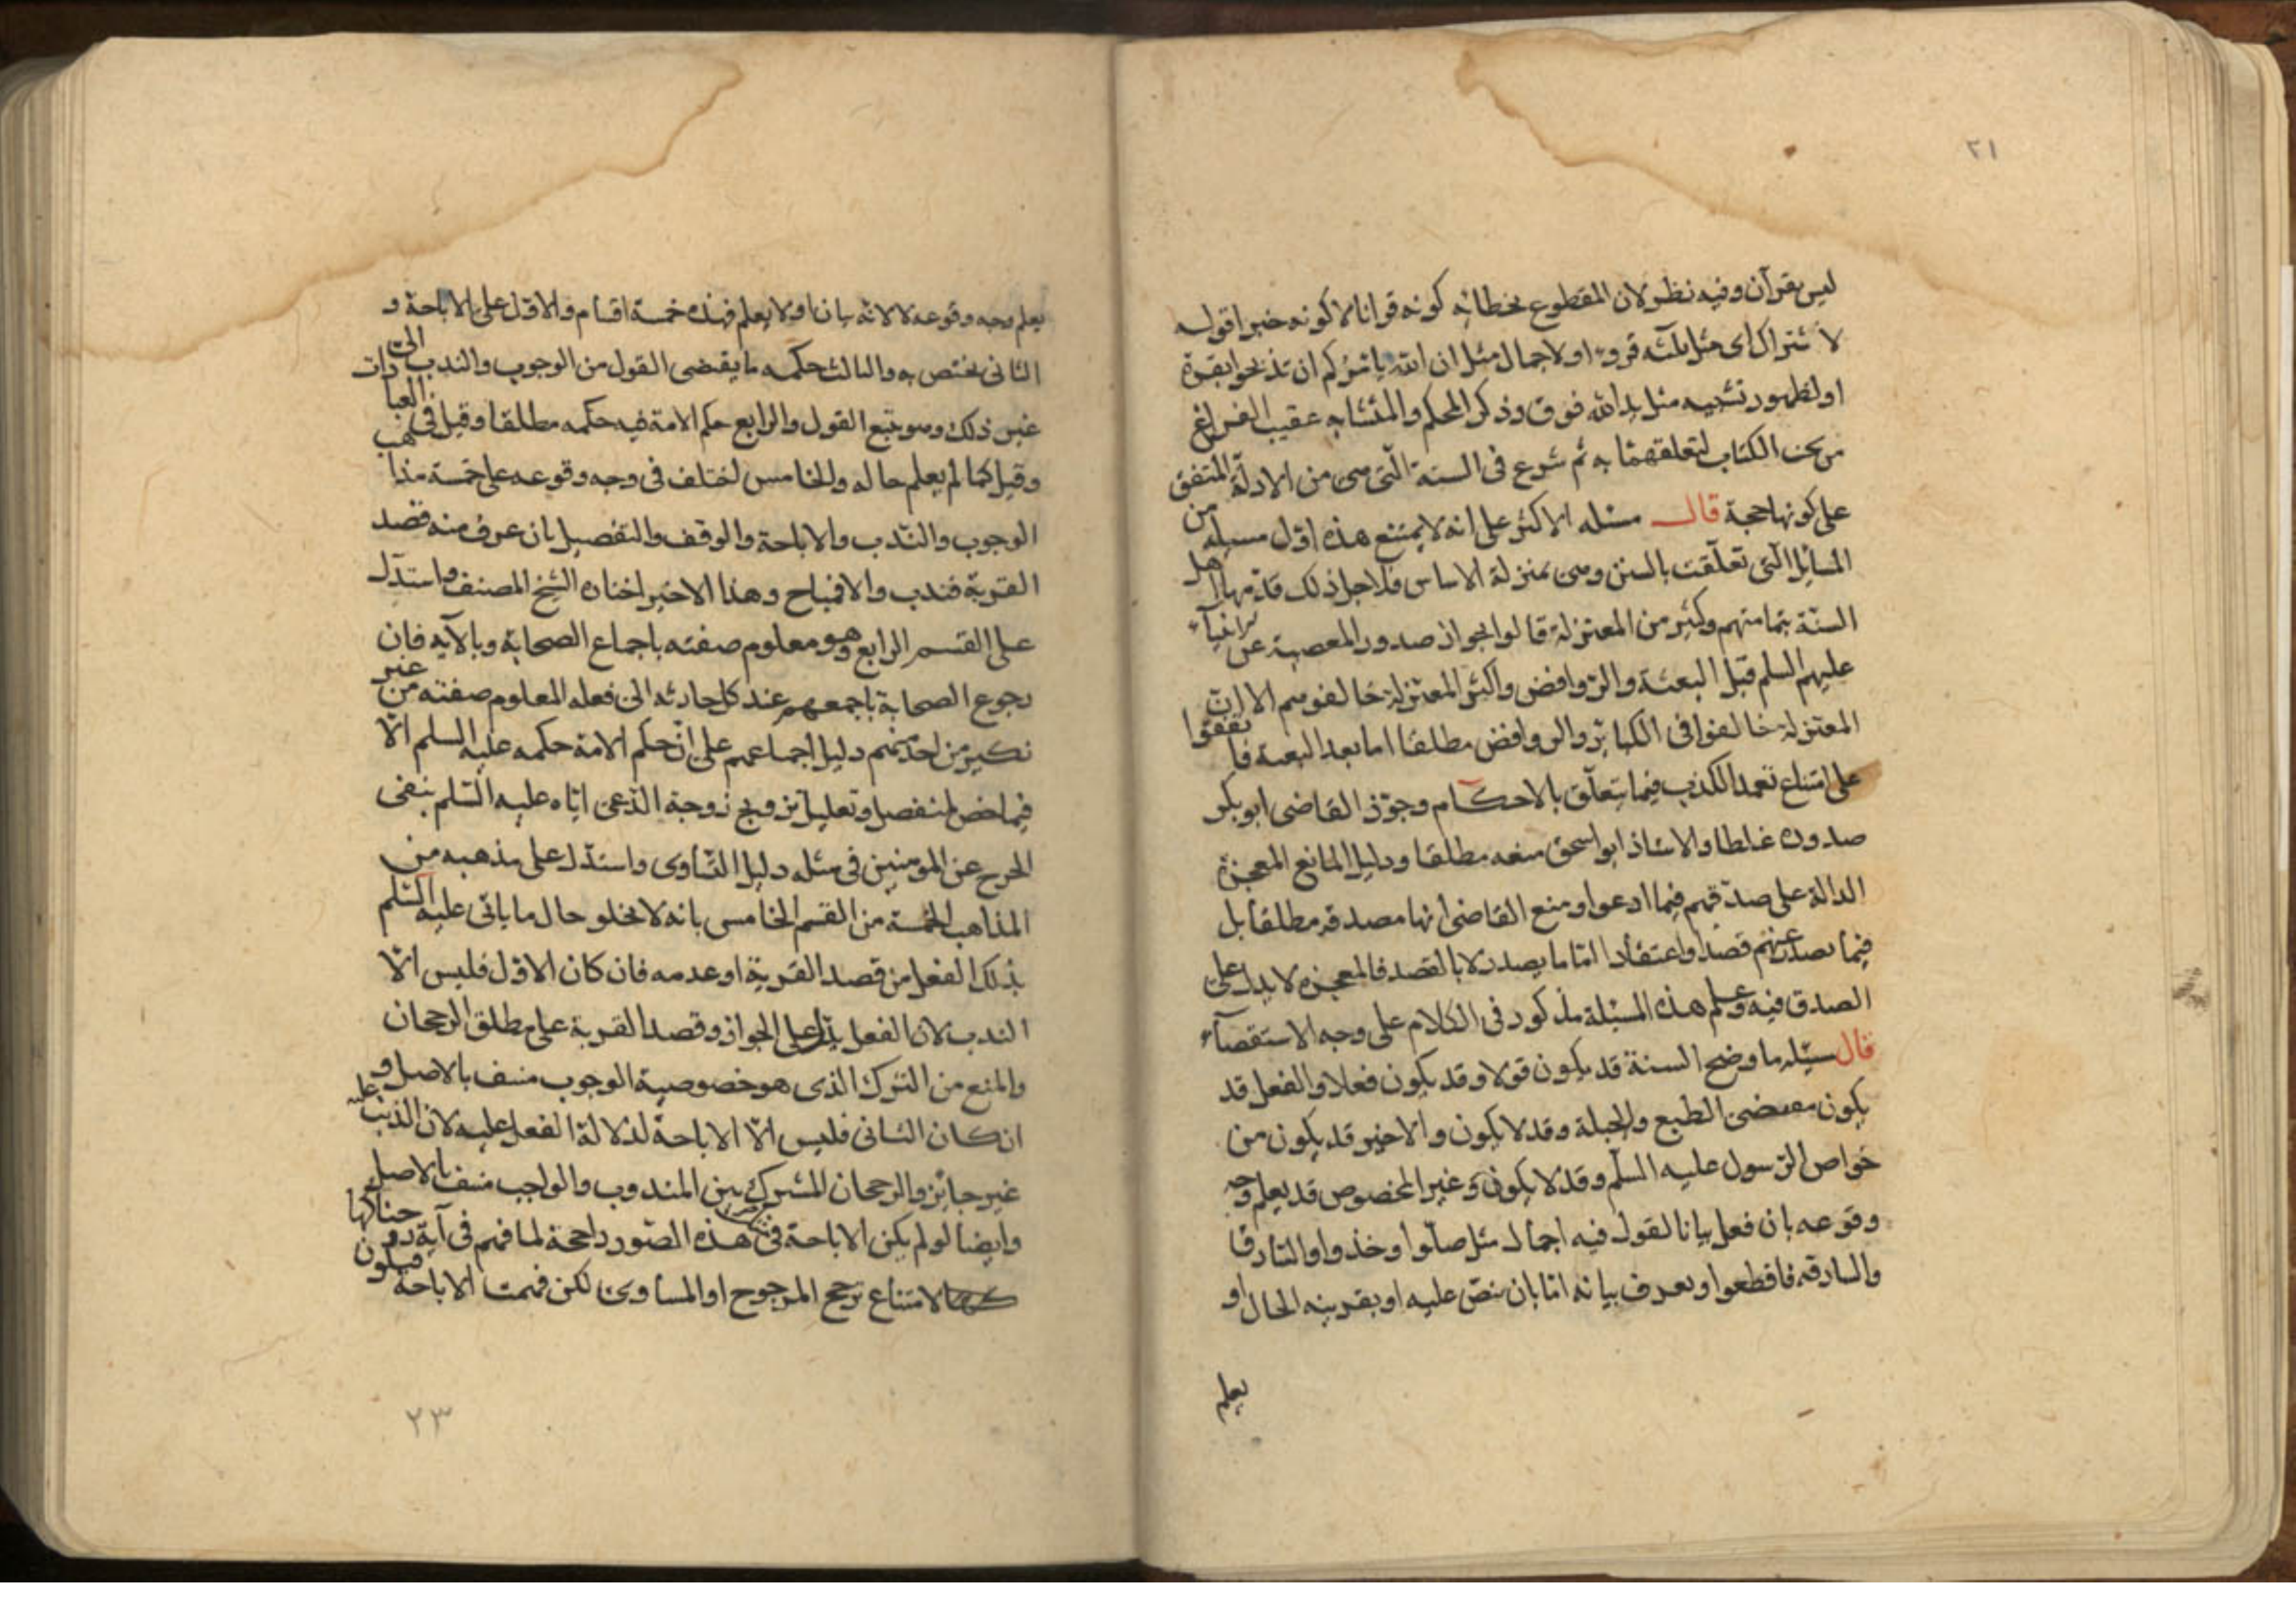 ٢١
ليس بقرآن وفيه نظر لان المقطوع بخطائه كونه قرانا لا كونه خبرا قوله
لاشتراك اى مثل ثلثه قروء او لاجمال مثل ان الله يامركم ان تذبحوا بقرة
او لظهور تشبيه مثل يد الله فوق وذكر المحكم والمتشابه عقيب الفراغ
من بحث الكتاب لتعلقهما به ثم شرع فى السنة التى هى من الادلة المتفق
على كونها حجة قال مسئله الاكثر على انه لا يمتنع هذه اول مسيله من
المسائل التى تعلقت بالسنن وهى بمنزلة الاساس فلاجل ذلك قدمها اهل
السنة بتمامتهم وكثير من المعتزلة قالوا بجواز صدور المعصية عن الانبيآء
عليهم السلم قبل البعثة والروافض واكثر المعتزلة خالفوهم الا ان
المعتزلة خالفوا فى الكبائر والروافض مطلقا اما بعد البعثة فاتفقوا
على امتناع تعمد الكذب فيما يتعلق بالاحكام وجوّز القاضى ابو بكر
صدوره غلطا والاستاذ ابو اسحق منعه مطلقا ودليل المانع المعجزة
الدالة على صدقهم فيما ادعوا ومنع القاضى انها مصدقه مطلقا بل
فيما يصدر عنهم قصدا واعتقادا امّا ما يصدر لا بالقصد فالمعجزه لا يدل على
الصدق فيه وعلم هذه المسئلة مذكور فى الكلام على وجه الاستقصآء
قال مسئله ما وضح السنة قد يكون قولا وقد يكون فعلا والفعل قد
يكون مقتضى الطبع والجبلة وقد لا يكون والاخير قد يكون من
خواص الرسول عليه السلم وقد لا يكون وغير المخصوص قد يعلم وجه
وقوعه بان فعل بيانا لقول فيه اجمال مثل صلّوا وخذوا والسارق
والسارقه فاقطعوا ويعرف بيانه امّا بان ينص عليه او بقرينه الحال او
يعلم
يعلم وجه وقوعه لا لانه بيان او لا يعلم فهذه خمسة اقسام والاول على الاباحة و
الثانى يختص به والثالث حكمه ما يقتضى القول من الوجوب والندب الى
غير ذلك وهو تبع القول والرابع حكم الامة فيه حكمه مطلقا وقيل فى العبادات
وقيل كما لم يعلم حاله والخامس اختلف فى وجه وقوعه على خمسة مذاهب
الوجوب والندب والاباحة والوقف والتفصيل بان عرف منه قصد
القربة فندب والا فمباح وهذا الاخير اختاره الشيخ المصنف واستدل
على القسم الرابع وهو معلوم صفته باجماع الصحابة وبالآيه فان
رجوع الصحابة باجمعهم عند كل حادثه الى فعله المعلوم صفته من غير
نكير من احد منهم دليل اجماعهم على ان حكم الامة حكمه عليه السلم الّا
فيما خص لمنفصل وتعليل تزويج زوجة الدعى ايّاه عليه السّلم بنفى
الحرج عن المومنين فى مثله دليل التساوى واستدل على مذهبه من
المذاهب الخمسة من القسم الخامس بانه لا يخلو حال ما ياتى عليه السّلم
بذلك الفعل من قصد القربة او عدمه فان كان الاول فليس الّا
الندب لان الفعل يدل على الجواز وقصد القربة على مطلق الرجحان
والمنع من الترك الذى هو خصوصية الوجوب منتف بالاصل و
ان كان الثانى فليس الّا الاباحة لدلالة الفعل عليه لان الذنب عليه
غير جايز والرجحان المشترك بين المندوب والواجب منتف بالاصل
وايضا لو لم يكن الاباحة فى هذه الصور راجحة لما فهم فى آية زوجناكها
لامتناع ترجح المرجوح او المساوى لكن فهمت الاباحة فيكون
٢٣